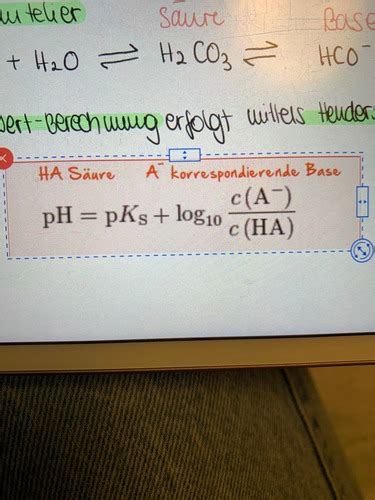 Säure Base
+ H₂O ⇌ H₂CO₃ ⇌ HCO⁻
wert-Berechnung erfolgt mittels Hender
HA Säure A⁻ korrespondierende Base
pH = pKₛ + log₁₀ c(A⁻)/c(HA)